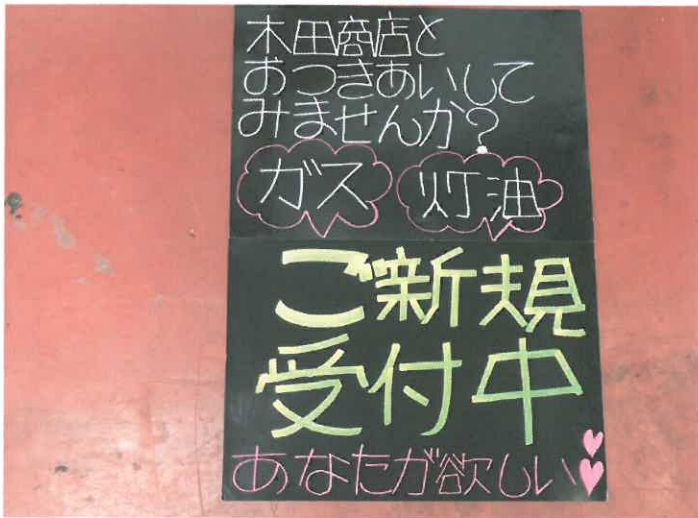 木田商店と
おつきあいして
みませんか?
ガス 灯油
ご新規
受付中
あなたが欲しい